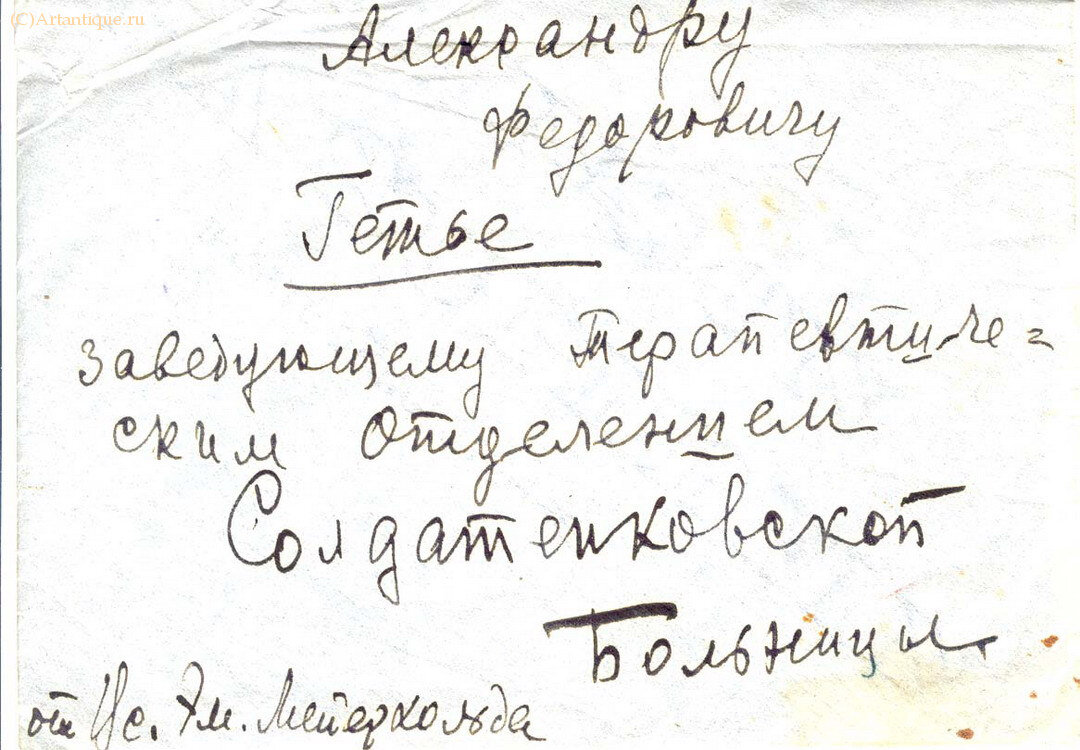 (C)Artantique.ru
Александру
Федоровичу
Гетье
заведующему терапевтиче=
ским отделением
Солдатенковской
Больницы.
от Вс. Эм. Мейерхольда